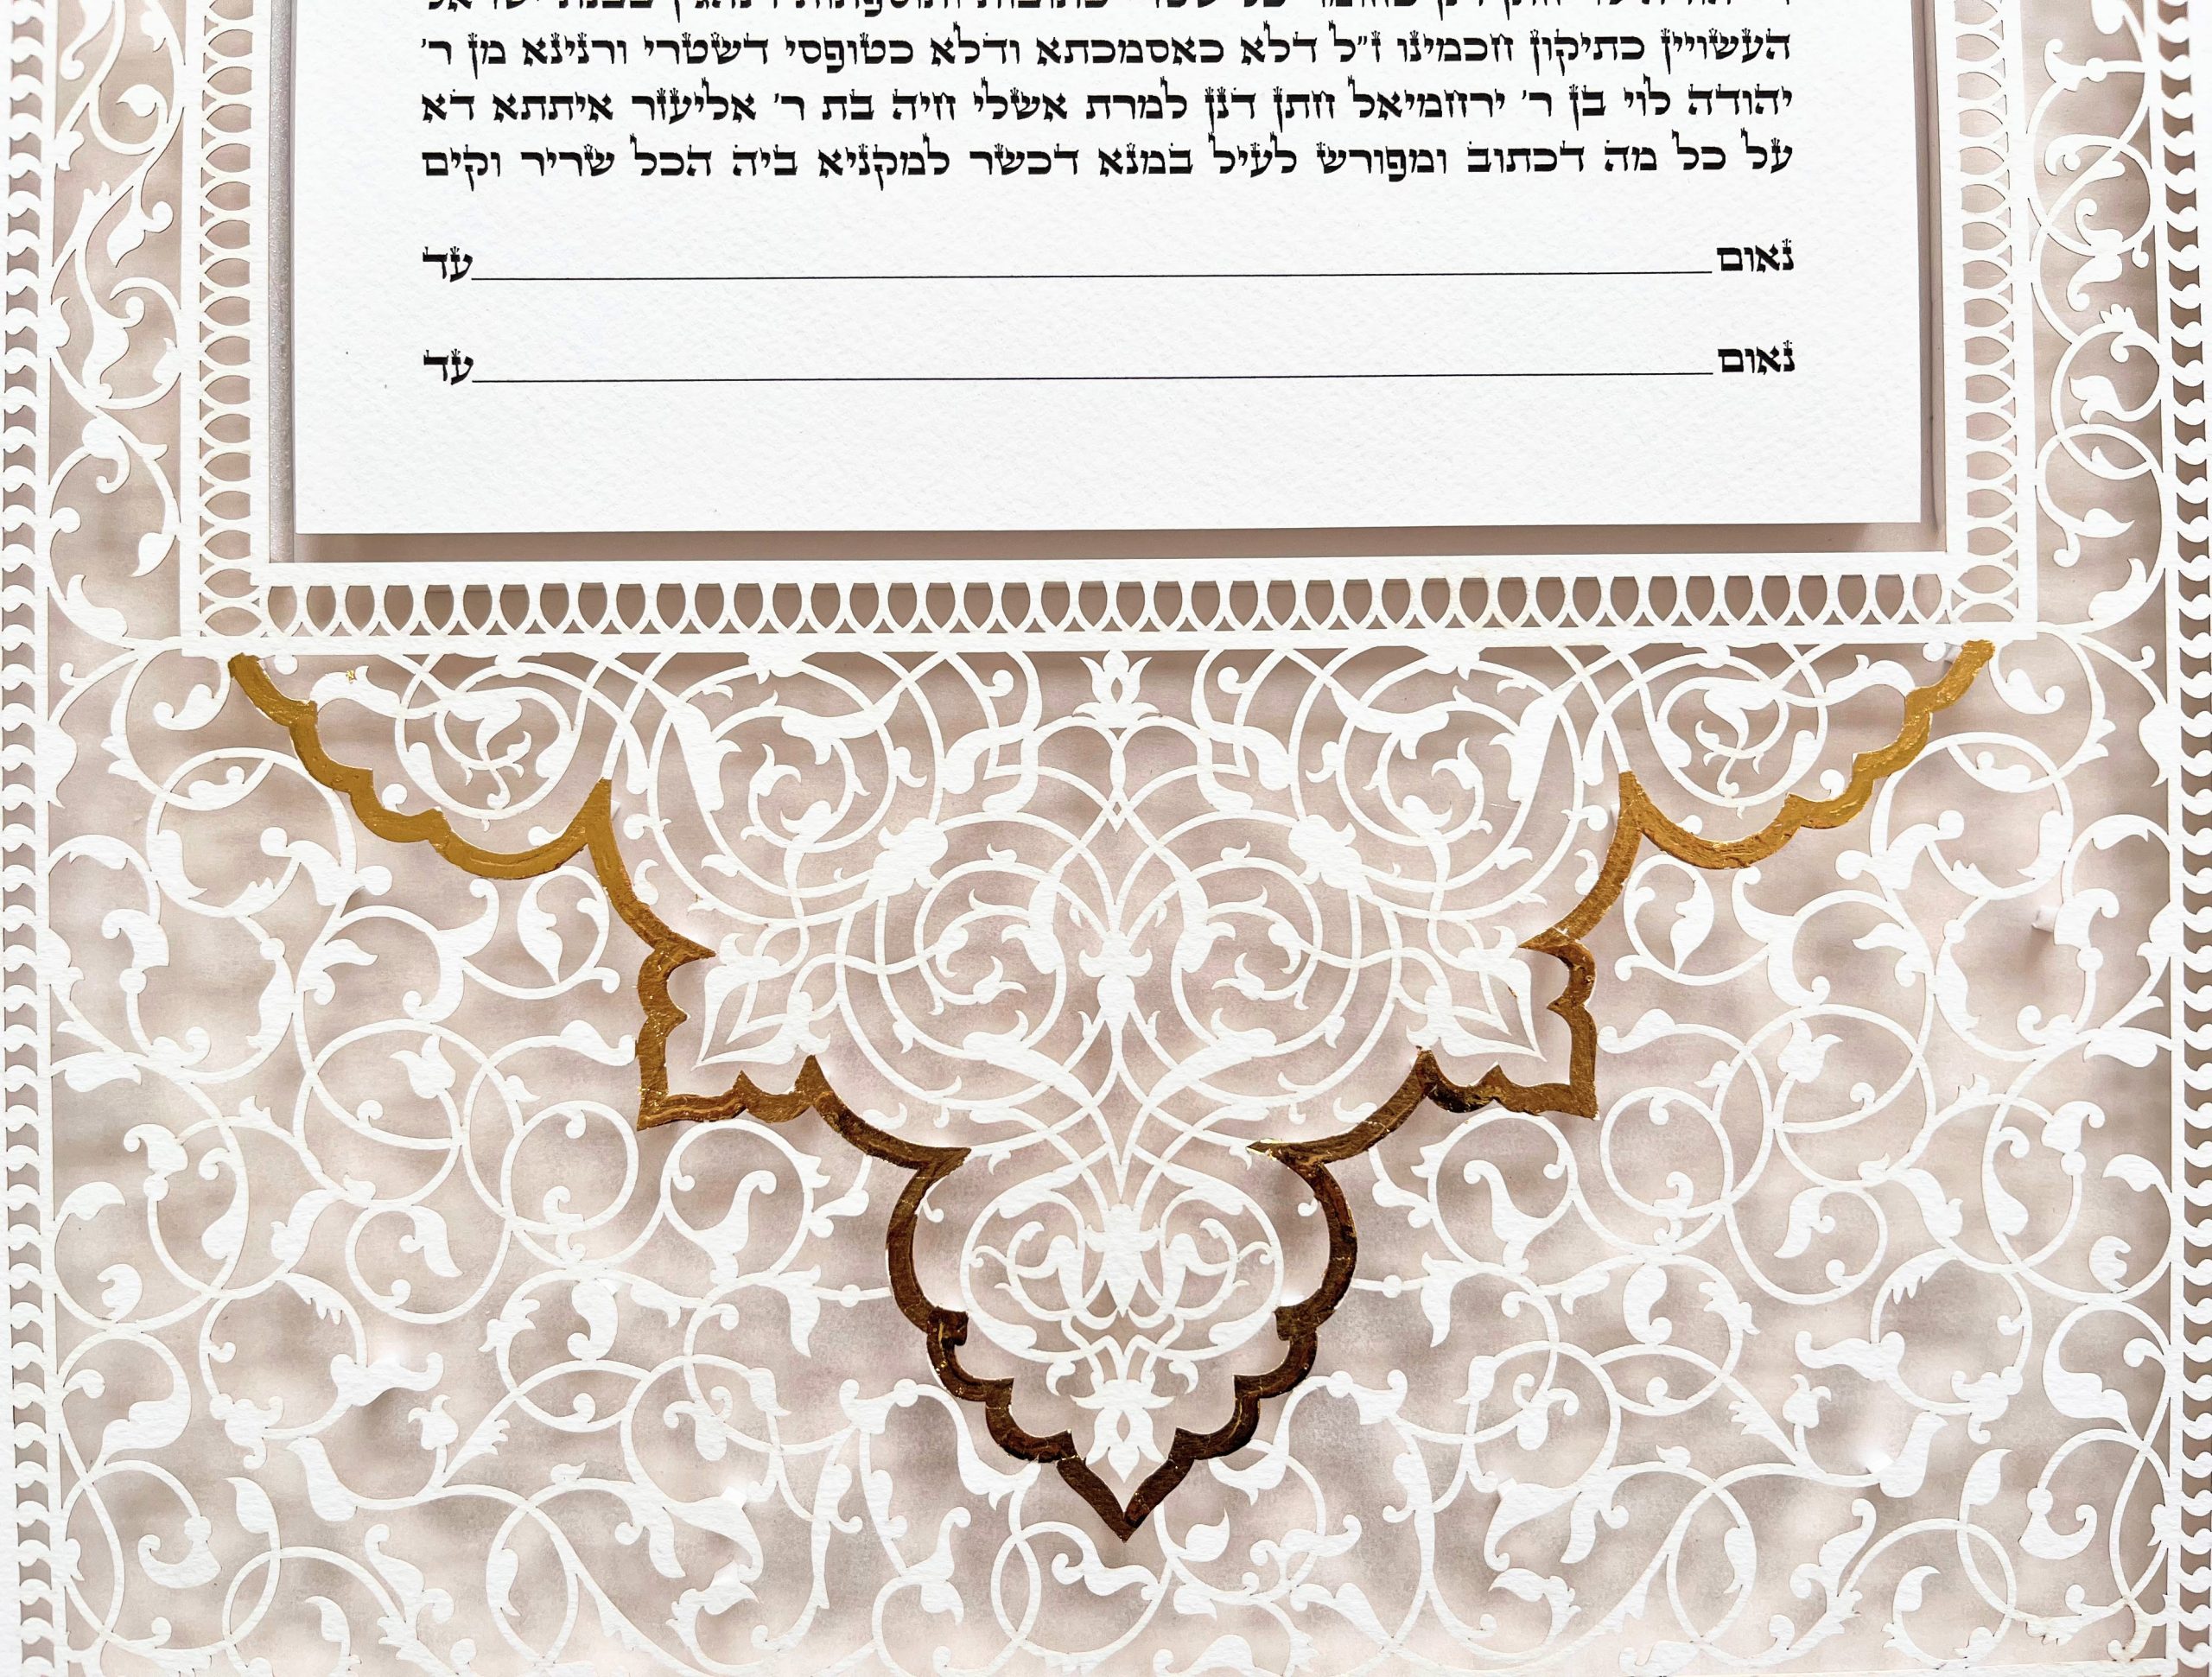 כל שטרי כתובות ותוספתות דנהגין בבנת ישראל
העשויין כתיקון חכמינו ז״ל דלא כאסמכתא ודלא כטופסי דשטרי ורנינא מן ר׳
יהודה לוי בן ר׳ ירחמיאל חתן דנן למרת אשלי חיה בת ר׳ אליעזר איתתא דא
על כל מה דכתוב ומפורש לעיל במנא דכשר למקניא ביה הכל שריר וקים
נאום עד
נאום עד